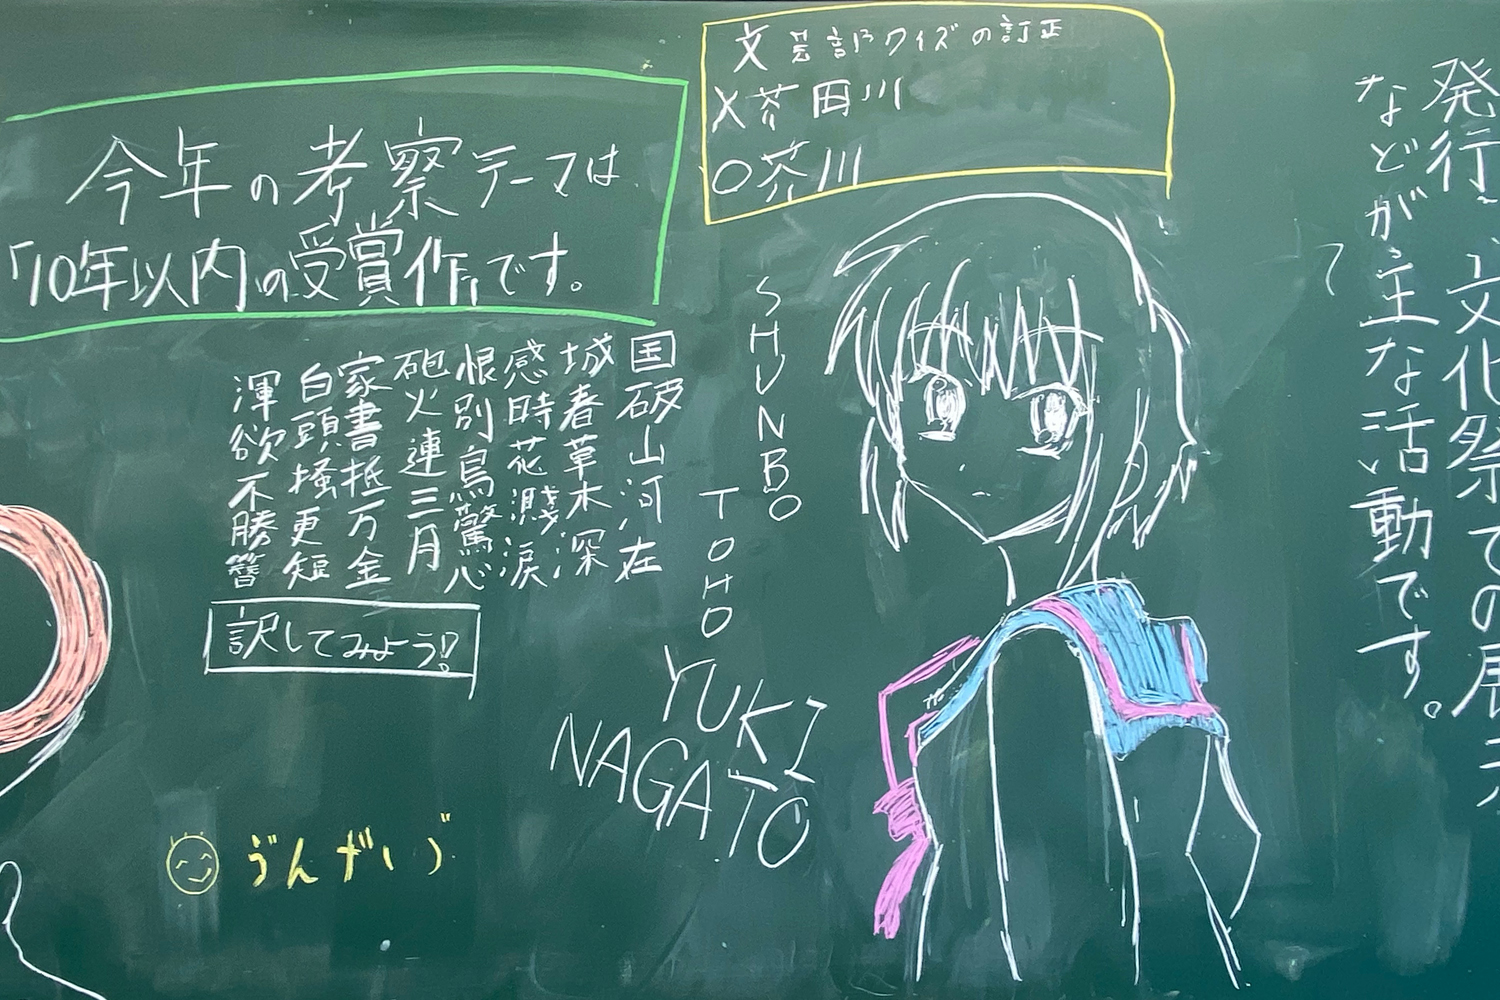 今年の考察テーマは
「10年以内の受賞作」です。
文芸部クイズの訂正
X芥田川
○芥川
発行、文化祭での展示
などが主な活動です。
国破山河在
城春草木深
感時花濺涙
恨別鳥驚心
砲火連三月
家書抵万金
白頭掻更短
渾欲不勝簪
訳してみよう!?
SHUNBO
TOHO
YUKI
NAGATO